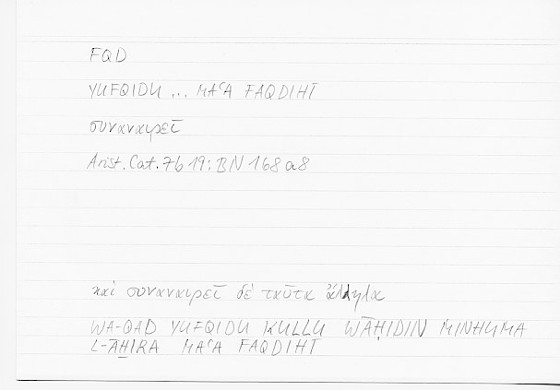 FQD
YUFQIDU ... MAʿA FAQDIHĪ
συναναιρεῖ
Arist. Cat. 7b19; BN 168a8
καὶ συναναιρεῖ δὲ ταῦτα ἄλληλα
WA-QAD YUFQIDU KULLU WĀḤIDIN MINHUMA
L-ĀḪIRA MAʿA FAQDIHĪ